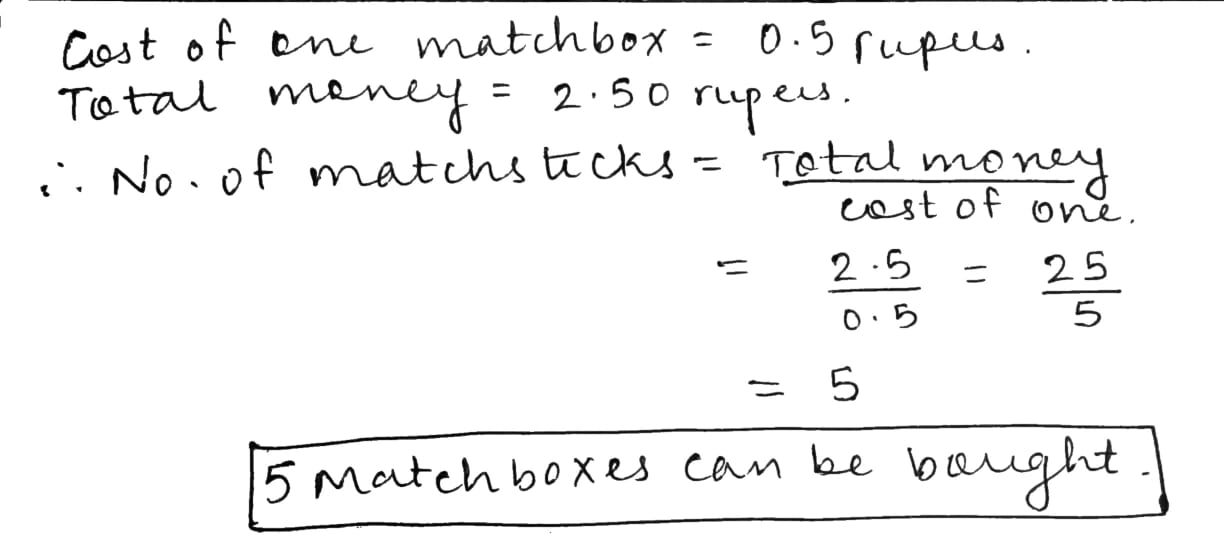 Cost of one matchbox = 0.5 rupees.
Total money = 2.50 rupees.
∴ No. of matchsticks = Total money
cost of one.
= 2.5 = 25
0.5 5
= 5
5 Matchboxes can be bought.